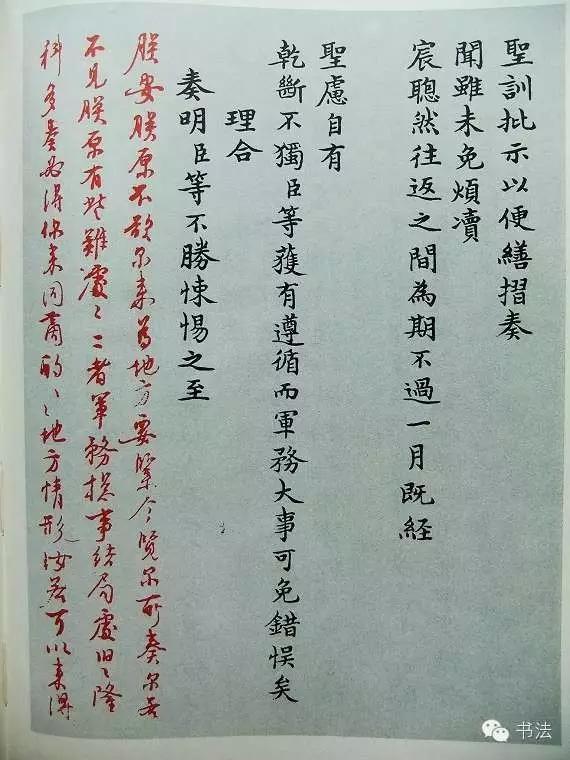 聖訓批示以便繕摺奏
聞雖未免煩瀆
宸聰然往返之間為期不過一月既経
聖慮自有
乾斷不獨臣等獲有遵循而軍務大事可免錯悞矣
理合
奏明臣等不勝悚惕之至
朕安朕原不欲尔来為地方要緊今覽尔所奏尔若
不見朕原有些難處〻二者軍務捴事結局處旧〻隆
科多奏必得你来同商酌〻地方情形汝若可以来得
书法